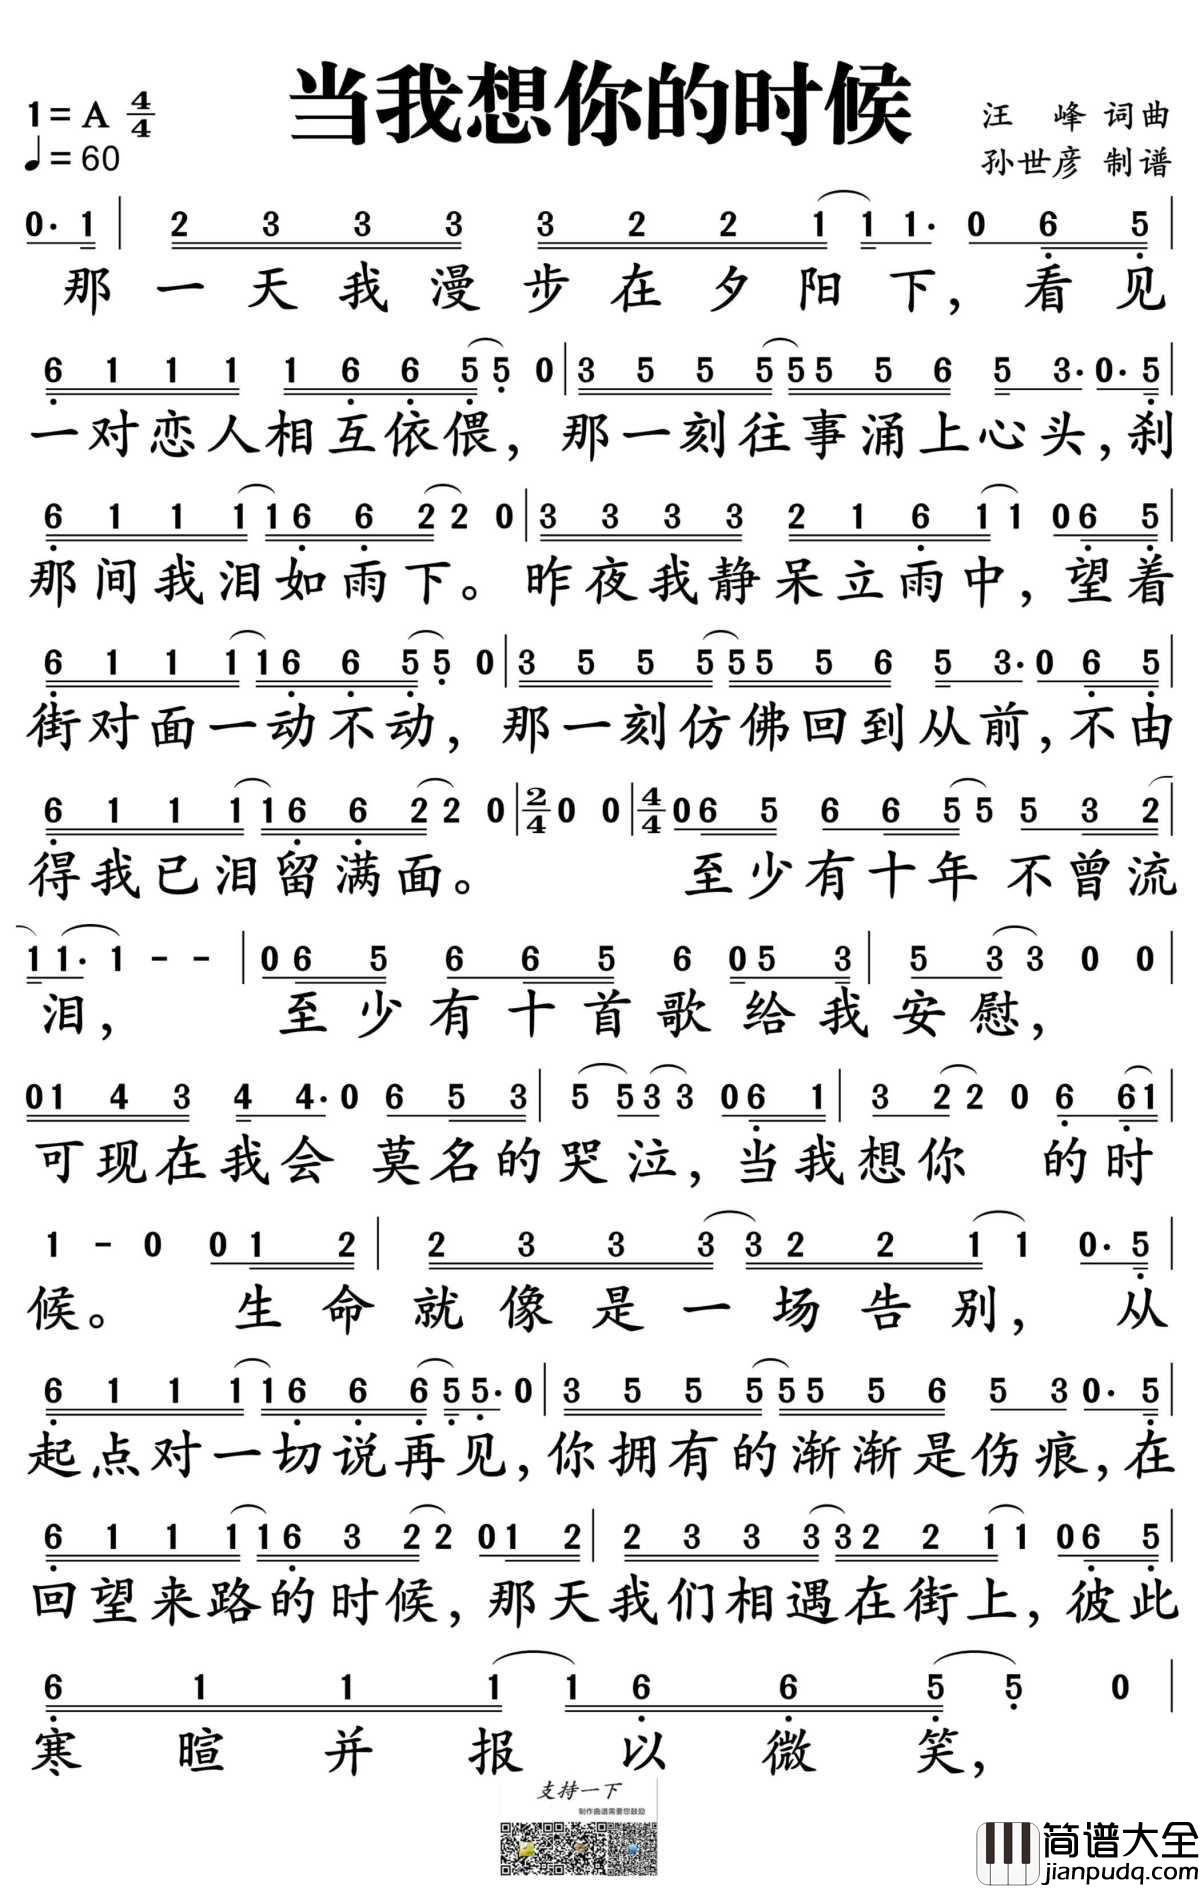 当我想你的时候
1=A 4/4
♩=60
汪 峰 词曲
孙世彦 制谱
0· 1 | 2 3 3 3 3 2 2 1 1 1· 0 6 5 |
那一天我漫步在夕阳下，看见
6 1 1 1 1 6 6 5 5 0 | 3 5 5 5 5 5 5 6 5 3· 0· 5 |
一对恋人相互依偎，那一刻往事涌上心头，刹
6 1 1 1 1 6 6 2 2 0 | 3 3 3 3 2 1 6 1 1 0 6 5 |
那间我泪如雨下。昨夜我静呆立雨中，望着
6 1 1 1 1 6 6 5 5 0 | 3 5 5 5 5 5 5 6 5 3· 0 6 5 |
街对面一动不动，那一刻仿佛回到从前，不由
6 1 1 1 1 6 6 2 2 0 | 2/4 0 0 | 4/4 0 6 5 6 6 5 5 5 3 2 |
得我已泪留满面。 至少有十年不曾流
1 1· 1 - - | 0 6 5 6 6 5 6 0 5 3 | 5 3 3 0 0 |
泪， 至少有十首歌给我安慰，
0 1 4 3 4 4· 0 6 5 3 | 5 5 3 3 0 6 1 | 3 2 2 0 6 6 1 |
可现在我会 莫名的哭泣，当我想你 的时
1 - 0 0 1 2 | 2 3 3 3 3 2 2 1 1 0· 5 |
候。 生命就像是一场告别，从
6 1 1 1 1 6 6 6 5 5· 0 | 3 5 5 5 5 5 5 6 5 3 0· 5 |
起点对一切说再见，你拥有的渐渐是伤痕，在
6 1 1 1 1 6 3 2 2 0 1 2 | 2 3 3 3 3 2 2 1 1 0 6 5 |
回望来路的时候，那天我们相遇在街上，彼此
6 1 1 1 1 6 6 5 5 0 |
寒暄并报以微笑，
支持一下
制作曲谱需要您鼓励
简谱大全
jianpudq.com